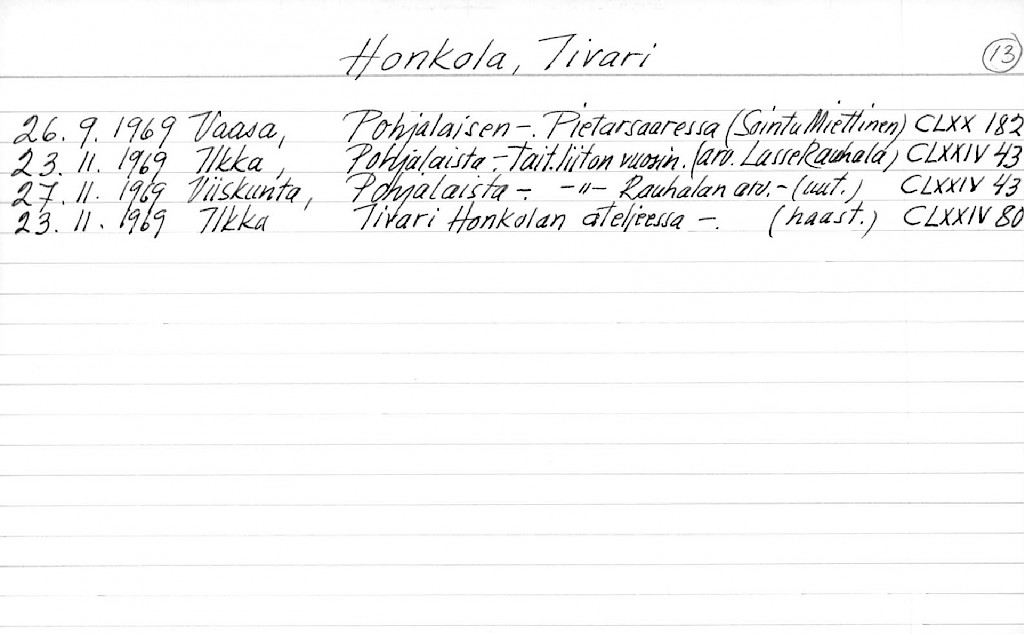 Honkola, Iivari 13
26. 9. 1969 Vaasa, Pohjalaisen -. Pietarsaaressa (Sointu Miettinen) CLXX 182
23. 11. 1969 Ilkka, Pohjalaista -. Tait.liiton vuosin. (arv. Lasse Rauhala) CLXXIV 43
27. 11. 1969 Viiskunta, Pohjalaista -. -"- Rauhalan arv. - (uut.) CLXXIV 43
23. 11. 1969 Ilkka Iivari Honkolan ateljeessa -. (haast.) CLXXIV 80